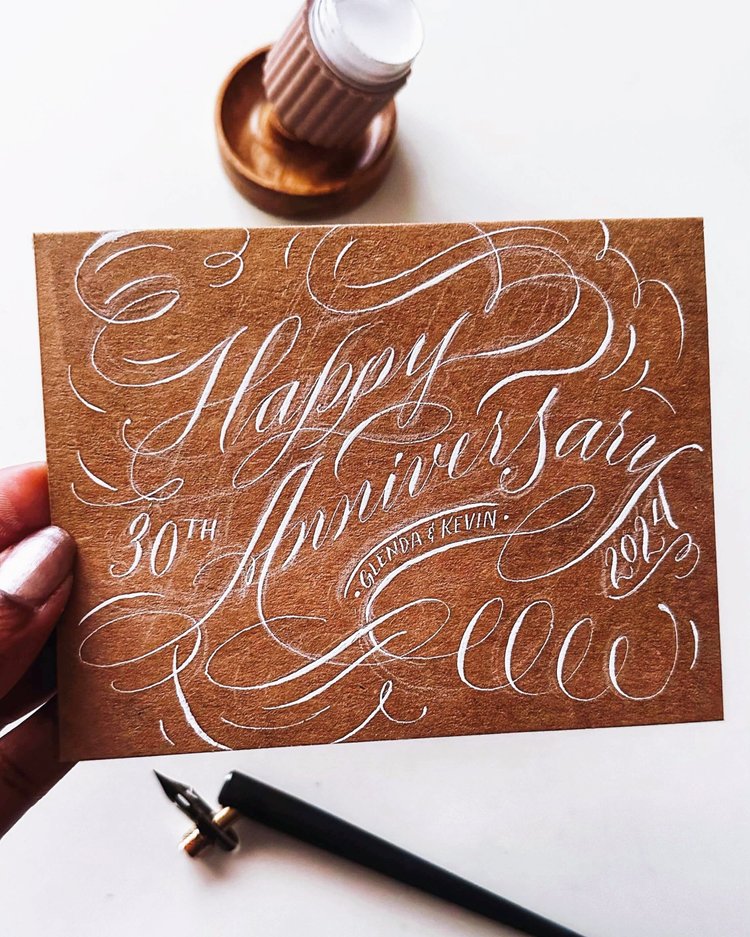 Happy
30TH Anniversary
GLENDA & KEVIN
2024